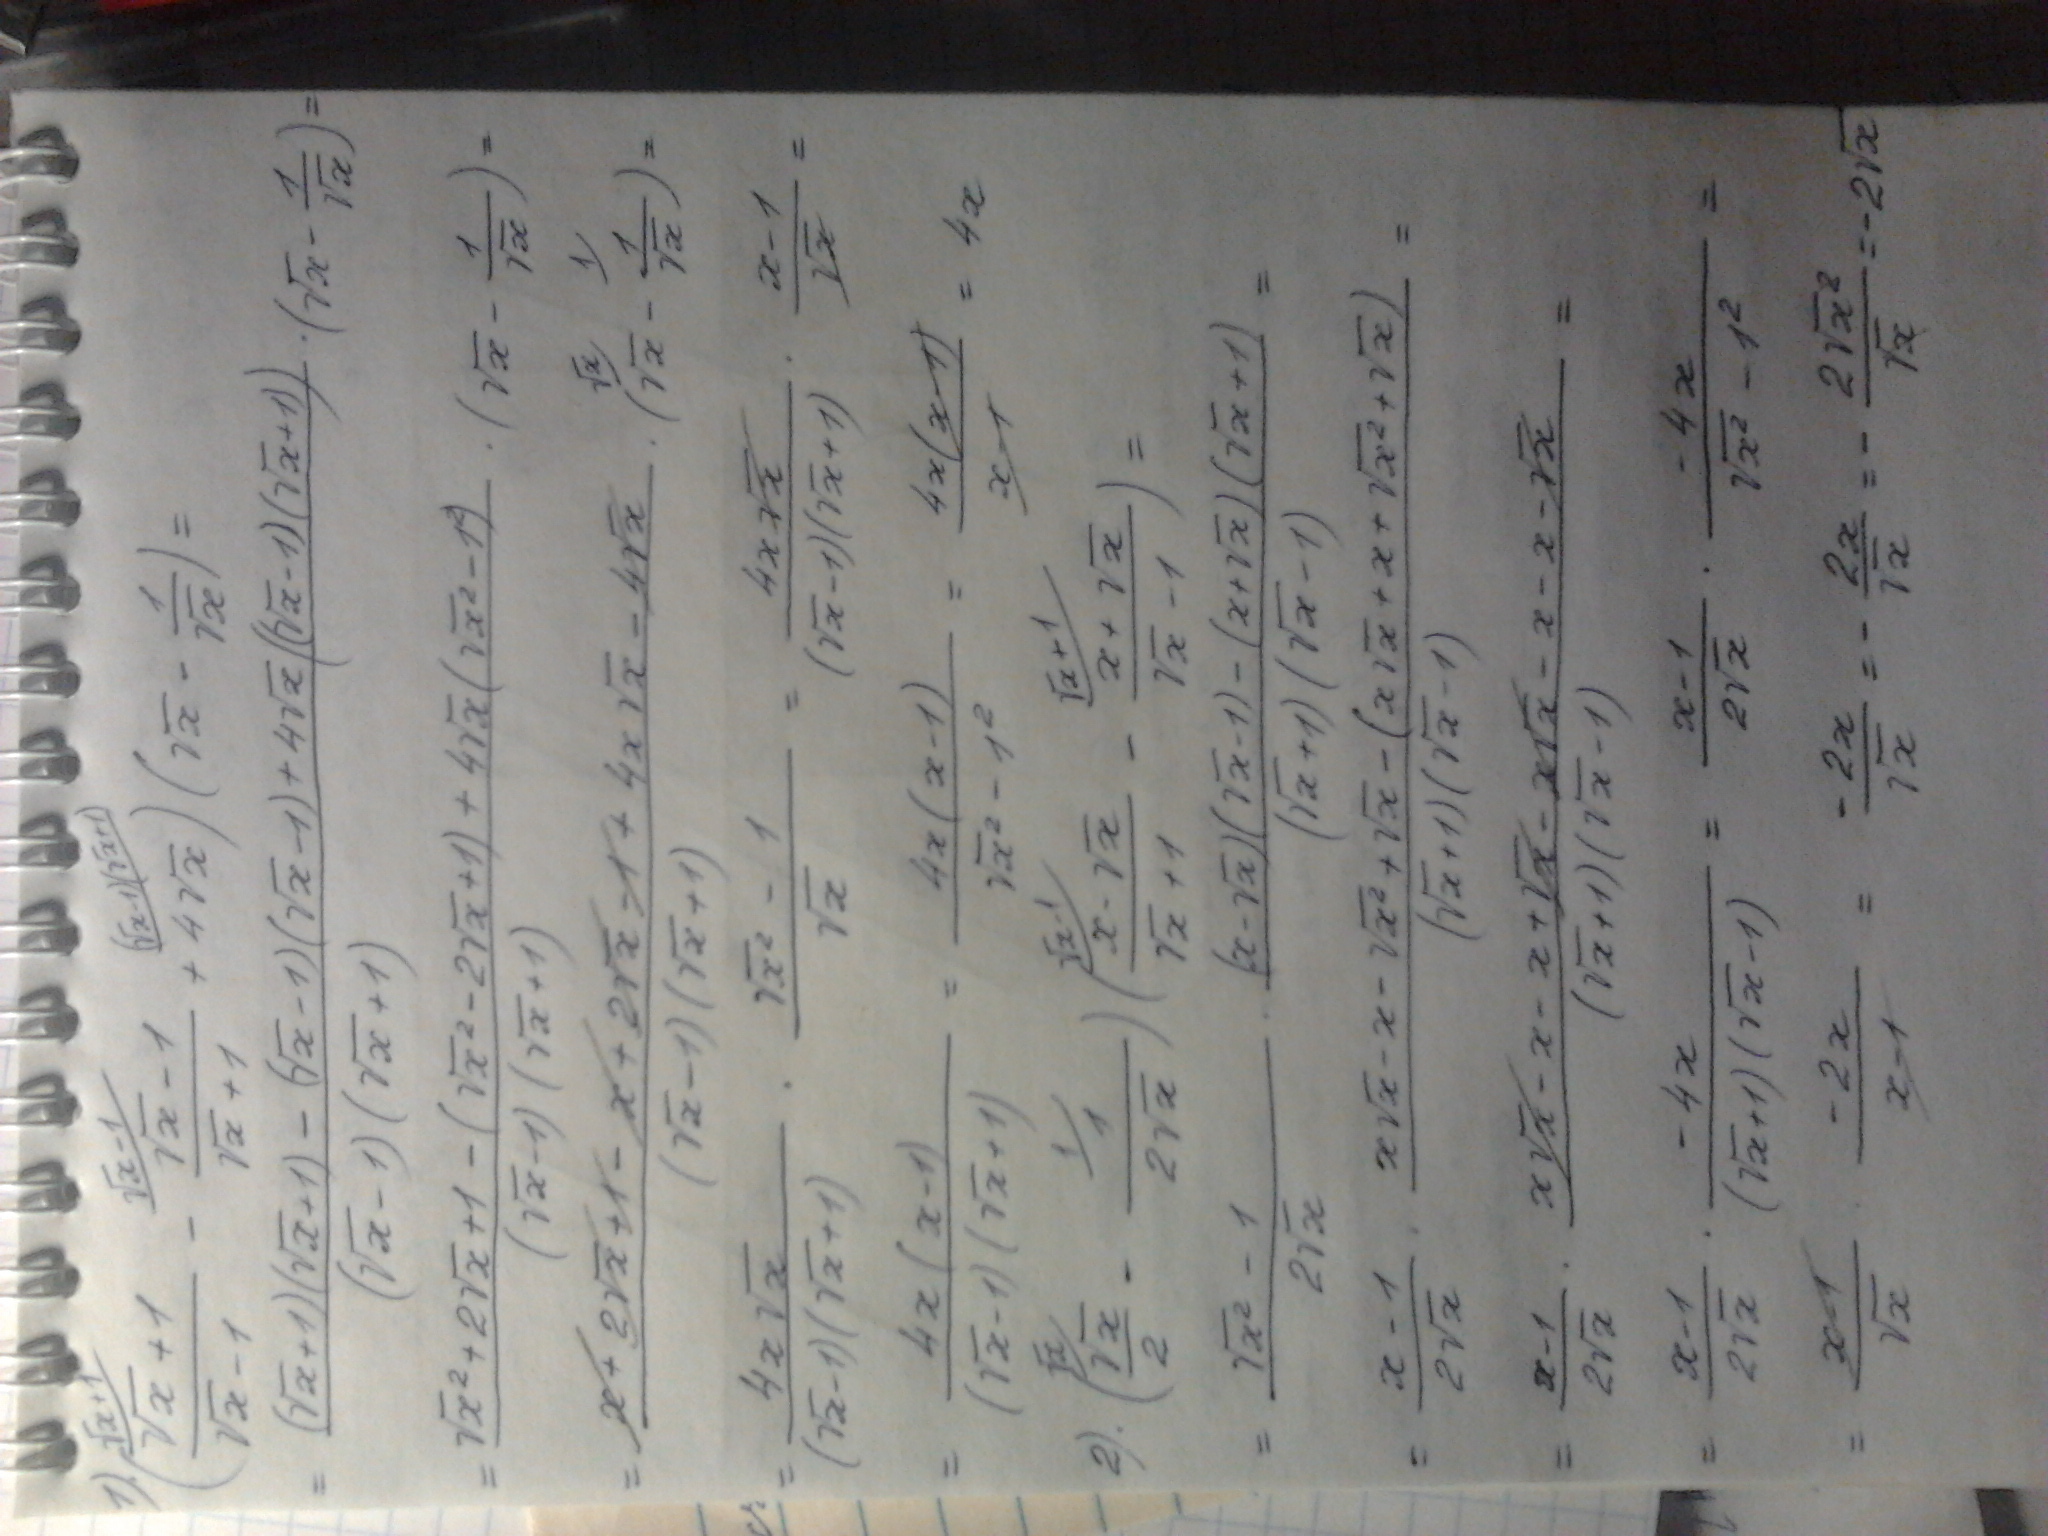 1). (√x+1/√x-1 - √x-1/√x+1 + 4√x)(√x - 1/√x) =
= (√x+1)(√x+1) - (√x-1)(√x-1) + 4√x((√x-1)(√x+1))/(√x-1)(√x+1) · (√x - 1/√x) =
= √x²+2√x+1-(√x²-2√x+1)+4√x(√x²-1²)/(√x-1)(√x+1) · (√x - 1/√x) =
= x+2√x+1-x+2√x-1+4x√x-4√x/(√x-1)(√x+1) · (√x - 1/√x) =
= 4x√x/(√x-1)(√x+1) · √x²-1/√x = 4x√x/(√x-1)(√x+1) · x-1/√x =
= 4x(x-1)/(√x-1)(√x+1) = 4x(x-1)/√x²-1² = 4x(x-1)/x-1 = 4x
2). (√x/2 - 1/2√x)(x-√x/√x+1 - x+√x/√x-1) =
= √x²-1/2√x · (x-√x)(√x-1)-(x+√x)(√x+1)/(√x+1)(√x-1) =
= x-1/2√x · x√x-x-√x²+√x-(x√x+x+√x²+√x)/(√x+1)(√x-1) =
= x-1/2√x · x√x-x-x+√x-x√x-x-x-√x/(√x+1)(√x-1) =
= x-1/2√x · -4x/(√x+1)(√x-1) = x-1/2√x · -4x/√x²-1² =
= x-1/√x · -2x/x-1 = -2x/√x = - 2x/√x = - 2√x²/√x = -2√x